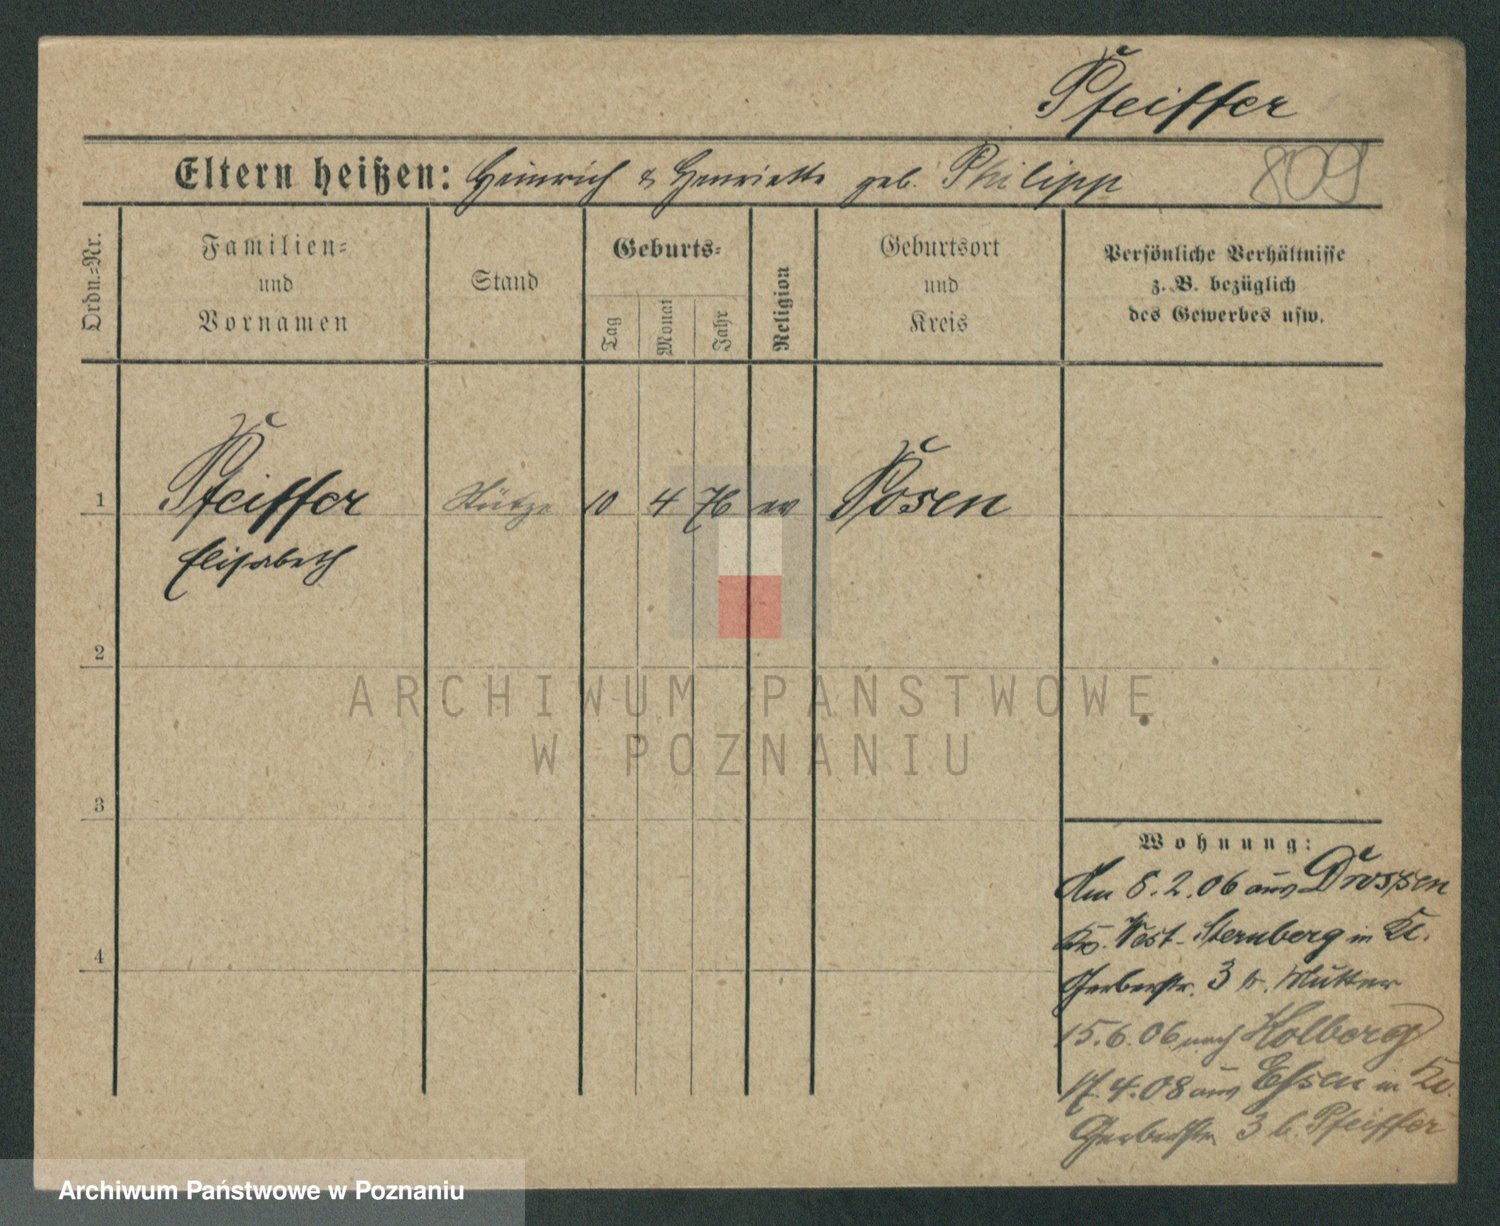 Pfeiffer
Eltern heißen: Heinrich & Henriette geb. Philipp
809
Ordn.=Nr.
Familien=
und
Vornamen
Stand
Geburts=
Tag
Monat
Jahr
Religion
Geburtsort
und
Kreis
Persönliche Verhältnisse
z. B. bezüglich
des Gewerbes usw.
1 Pfeiffer Stütze 10 4 76 ev Posen
Elisabeth
2
ARCHIWUM PAŃSTWOWE
W POZNANIU
3
Wohnung:
Am 8.2.06 aus Drossen
Kr. West-Sternberg in Kl.
Gerberstr. 3 b. Mutter
4
15.6.06 nach Kolberg
17.4.08 aus Essen in Kl.
Gerberstr. 3 b. Pfeiffer
Archiwum Państwowe w Poznaniu